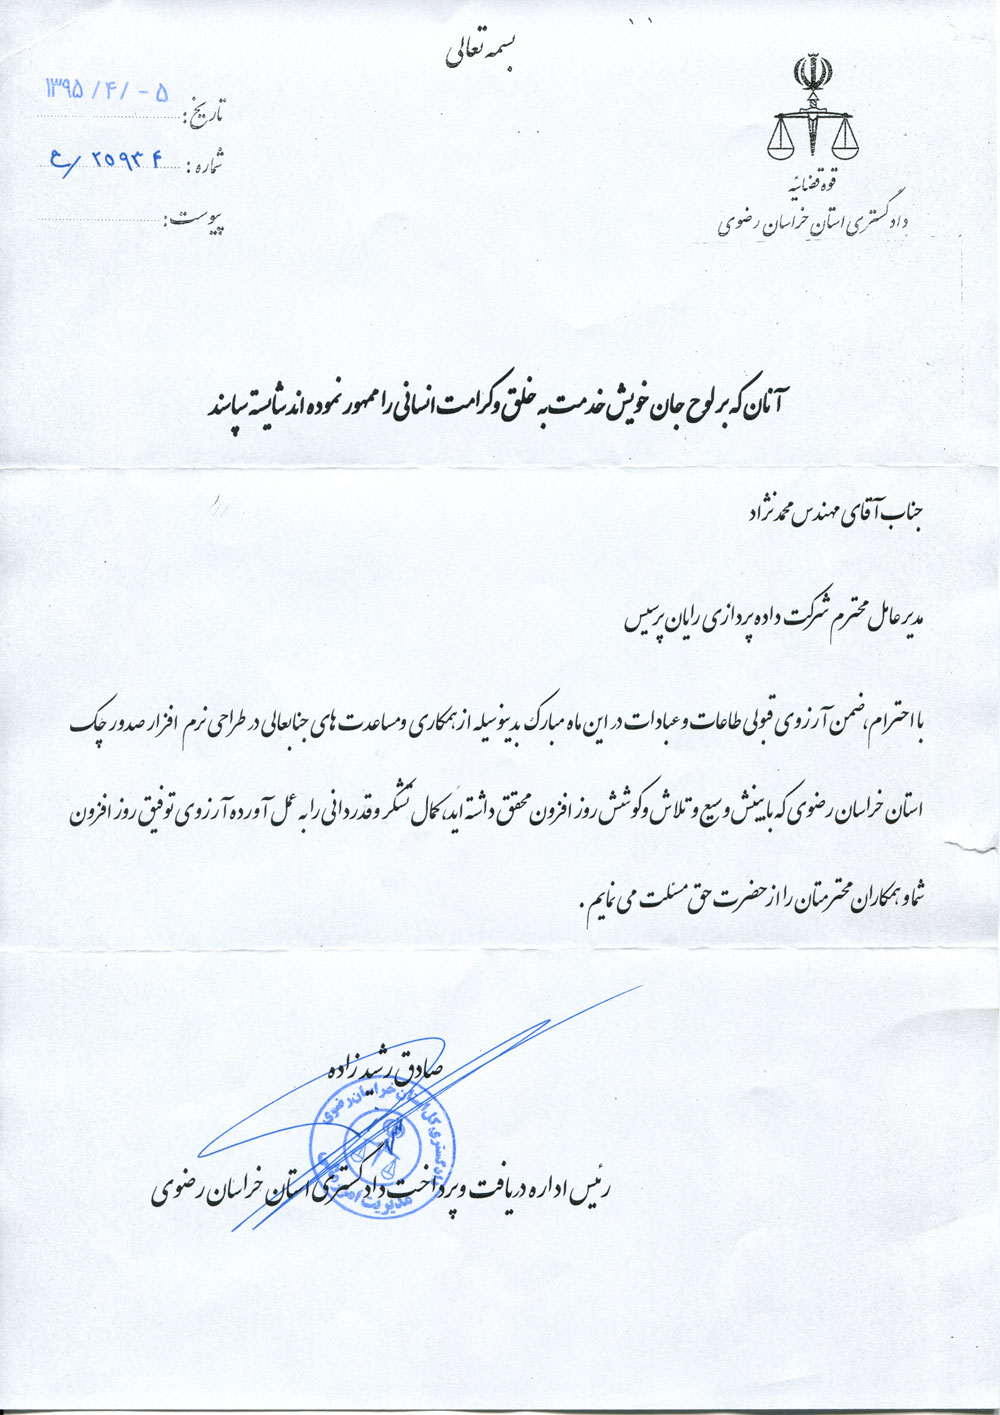 بسمه تعالی
قوه قضائیه
دادگستری استان خراسان رضوی
تاریخ: ۱۳۹۵/۴/-۵
شماره: ۲۵۹۳۴/ع
پیوست:
آنان که بر لوح جان خویش خدمت به خلق و کرامت انسانی را ممهور نموده اند شایسته سپاسند
جناب آقای مهندس محمدنژاد
مدیر عامل محترم شرکت داده پردازی رایان پرسیس
با احترام، ضمن آرزوی قبولی طاعات و عبادات در این ماه مبارک بدینوسیله از همکاری و مساعدت های جنابعالی در طراحی نرم افزار صدور چک
استان خراسان رضوی که با بینش وسیع و تلاش و کوشش روز افزون محقق داشته اید، کمال تشکر و قدردانی را به عمل آورده آرزوی توفیق روز افزون
شما و همکاران محترمتان را از حضرت حق مسئلت می نمایم .
صادق رشیدزاده
دادگستری کل استان خراسان رضوی
رئیس اداره دریافت و پرداخت دادگستری استان خراسان رضوی
مدیریت امور